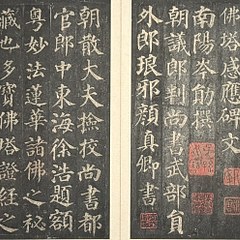 佛塔感應碑文
南陽岑勛撰
朝議郎判尚書武部員
外郎琅邪顏真卿書
朝散大夫撿校尚書都
官郎中東海徐浩題額
粵妙法蓮華諸佛之秘
藏也多寶佛塔證經之